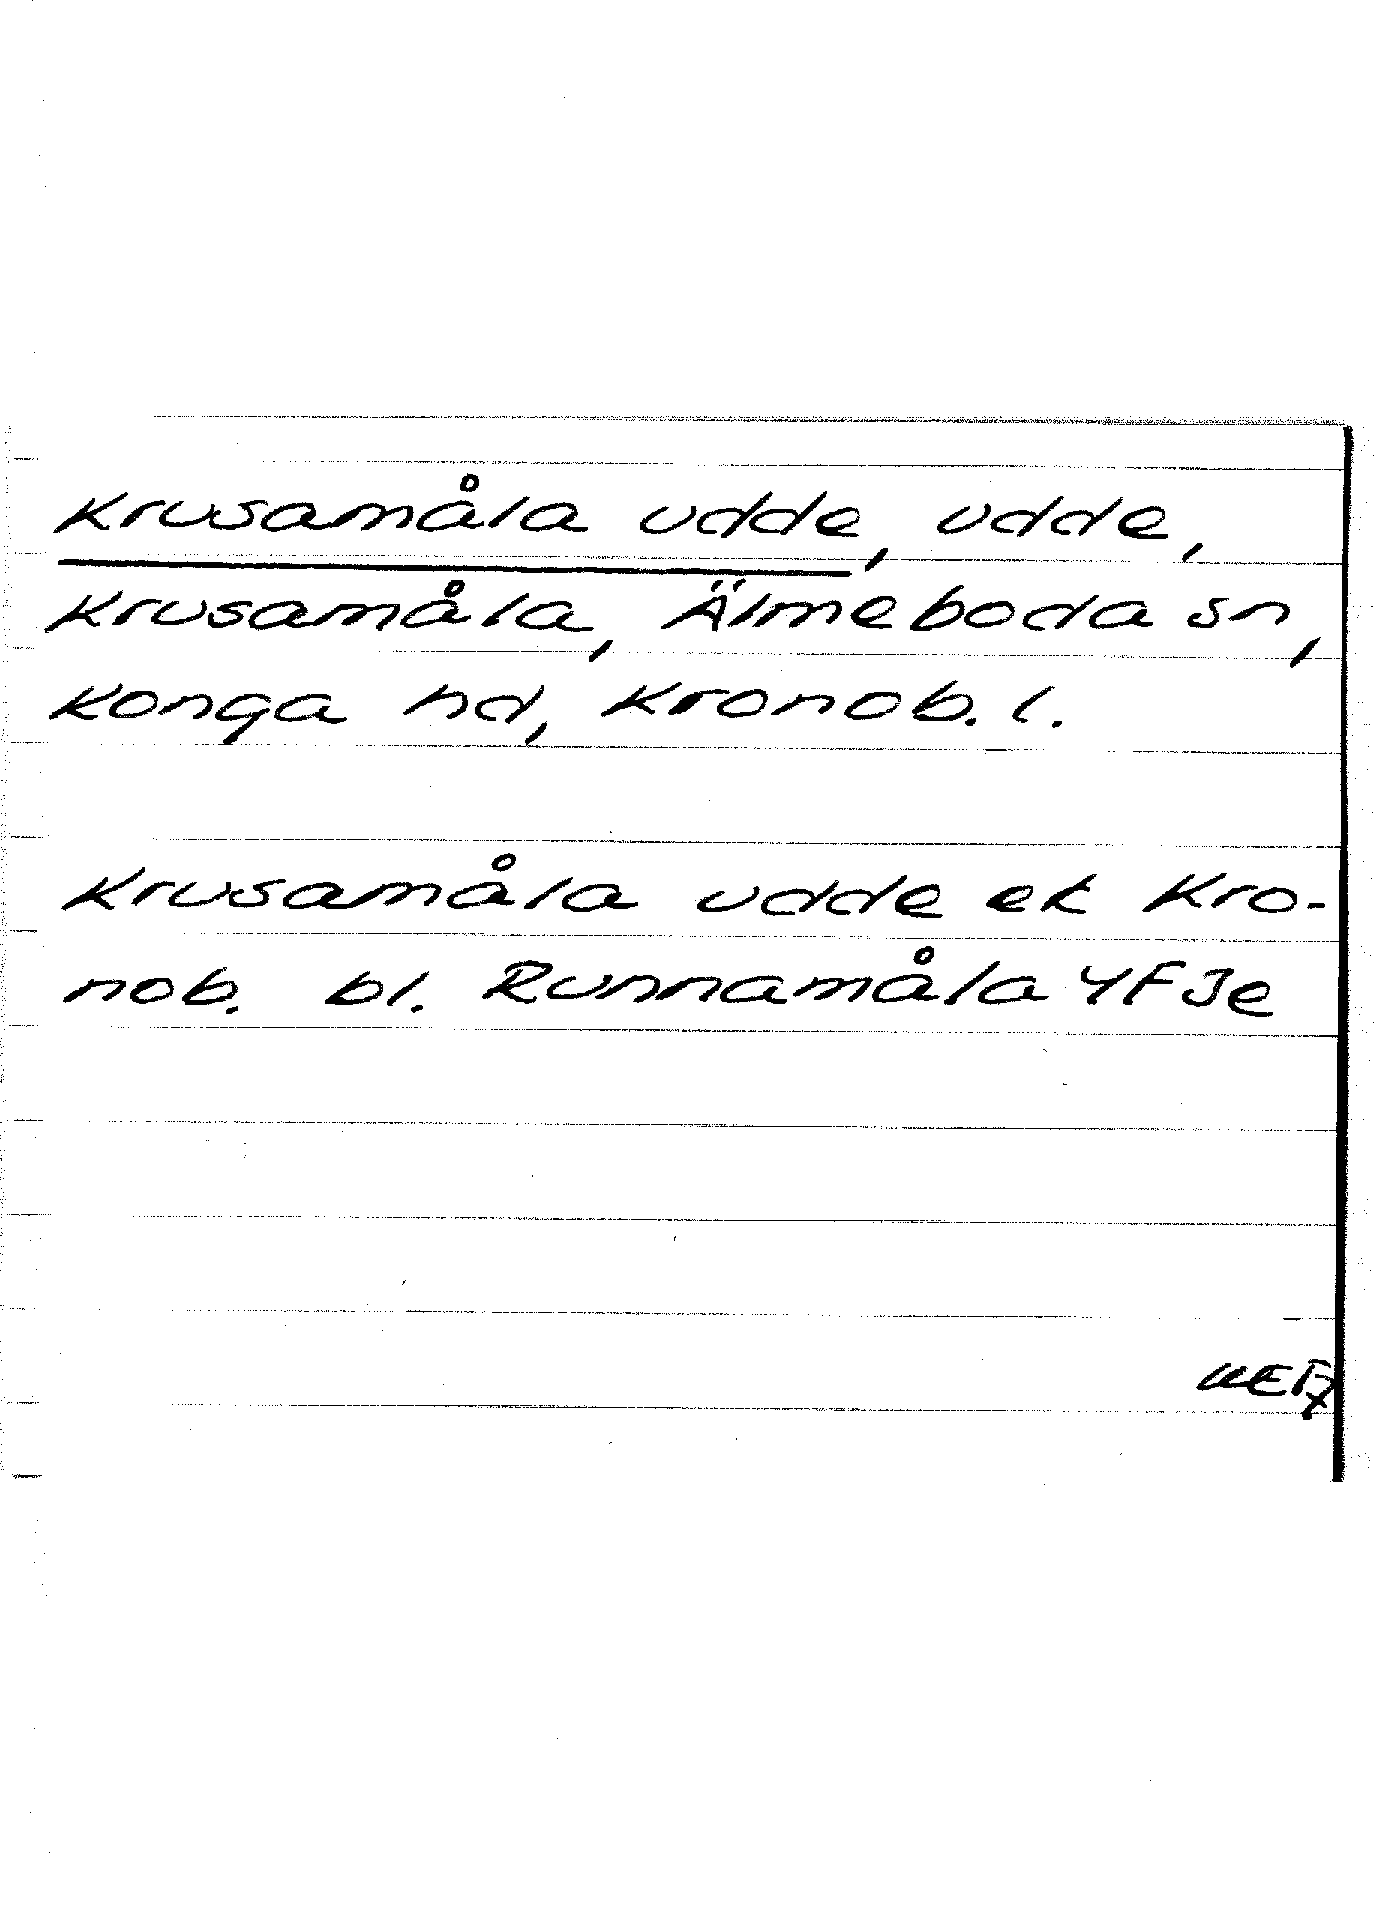 Krusamåla udde, udde,
Krusamåla, Älmeboda sn,
Konga hd, Kronob. l.
Krusamåla udde ek Kro-
nob. bl. Runnamåla 4F3e